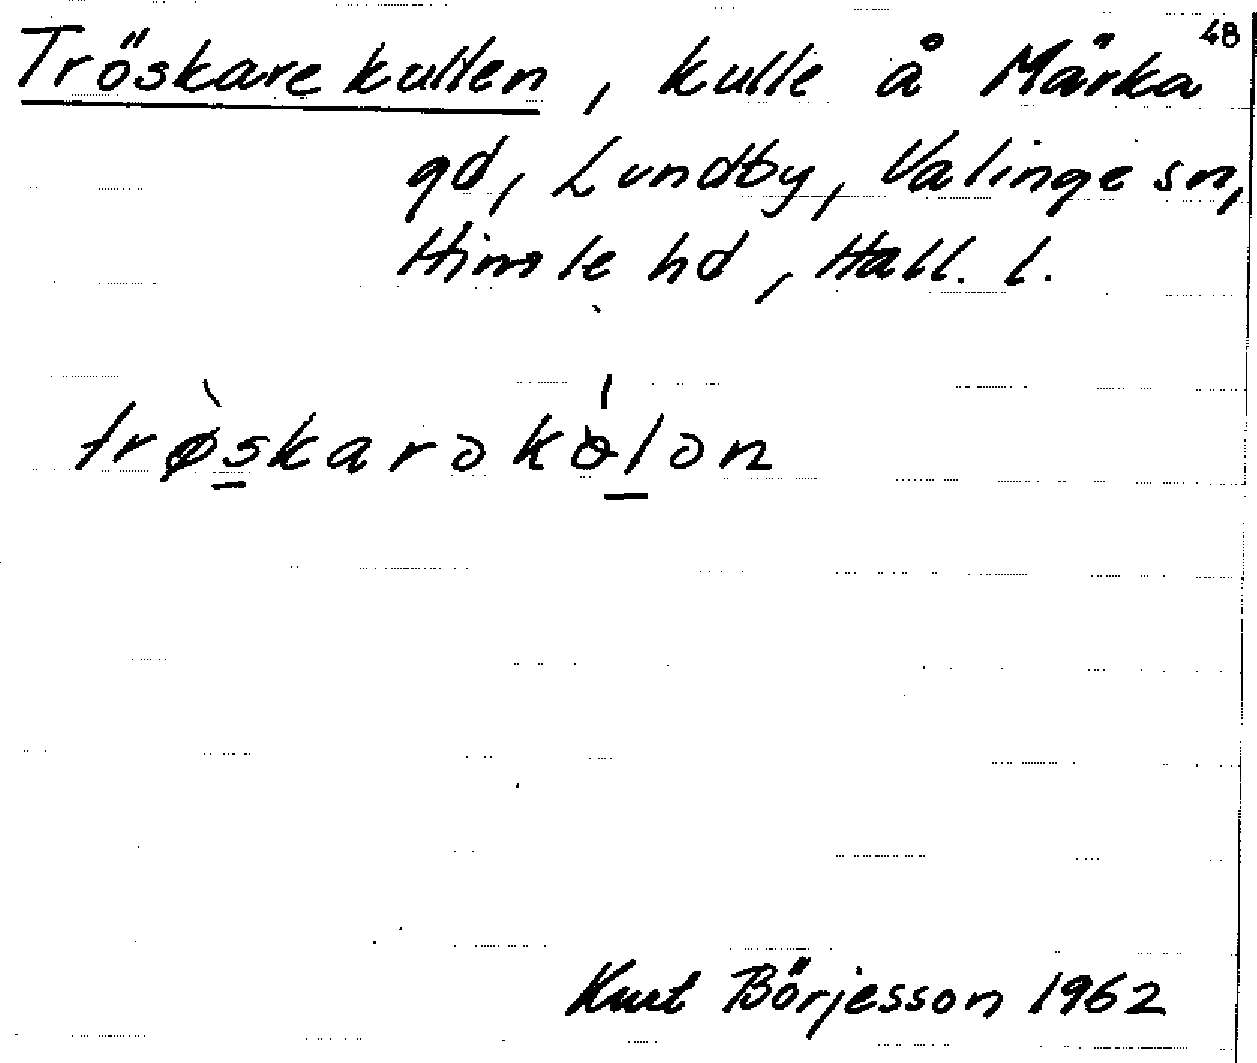 48
Tröskarekullen, kulle å Märka
gd, Lundby, Valinge sn,
Himle hd, Hall. l.
trø̀s̲karəkɵ́l̲ən
Kurt Börjesson 1962